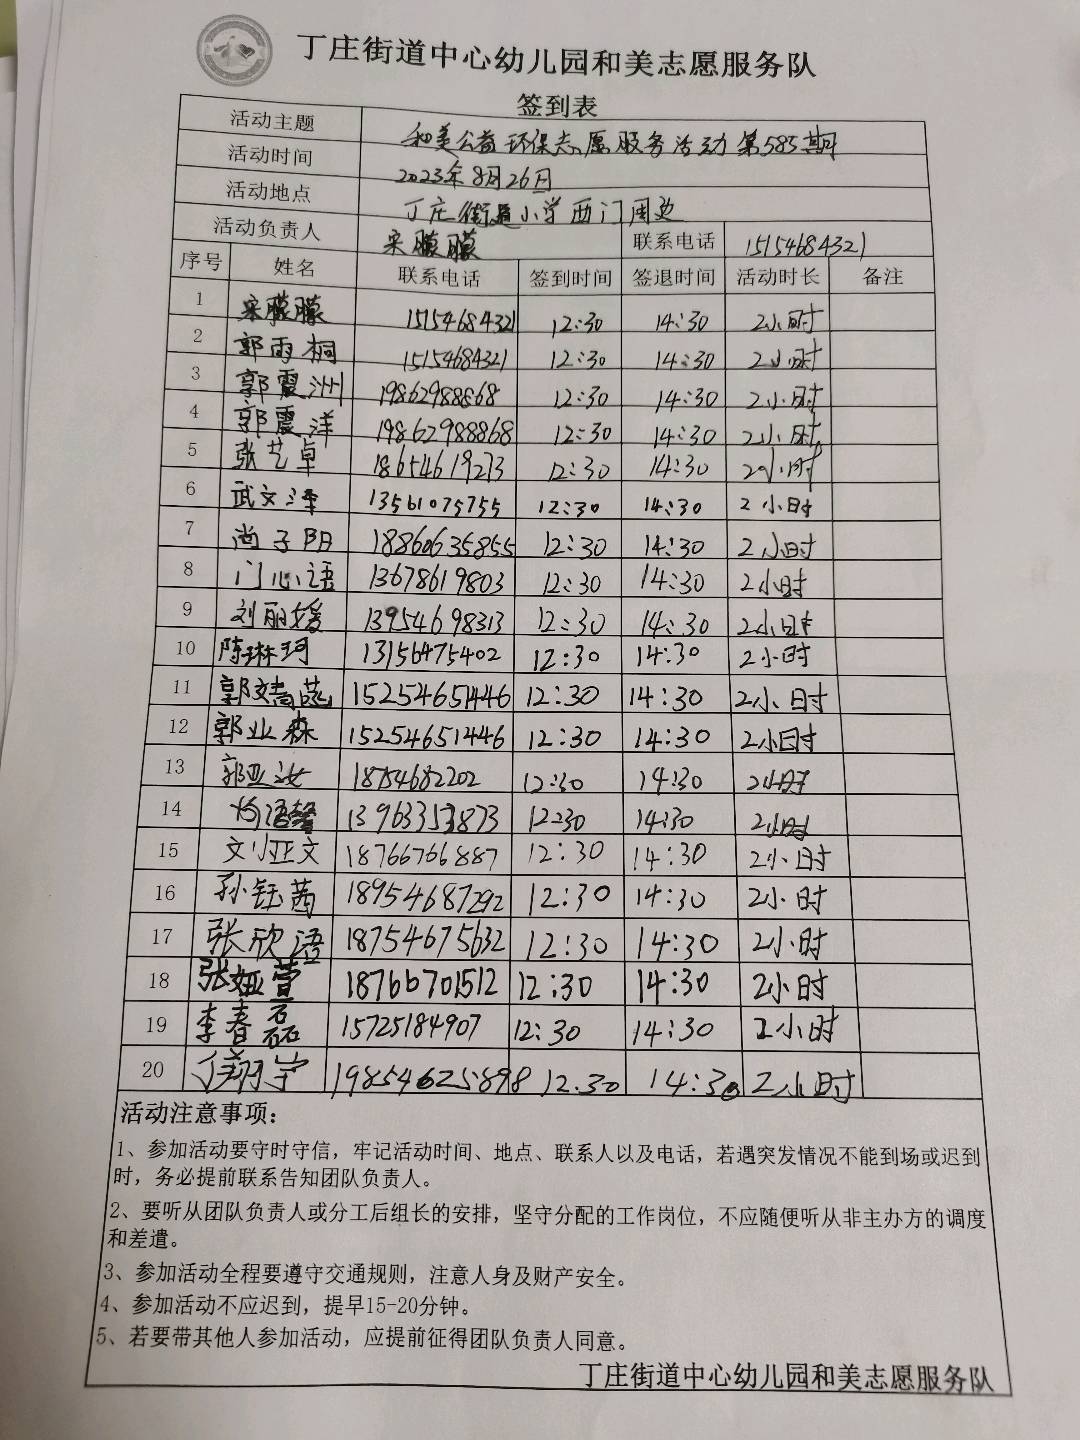 丁庄街道中心幼儿园和美志愿服务队
签到表
活动主题 和美公益环保志愿服务活动第585期
活动时间 2023年8月26日
活动地点 丁庄街道小学西门周边
活动负责人 宋朦朦 联系电话 15154684321
序号 姓名 联系电话 签到时间 签退时间 活动时长 备注
1 宋朦朦 15154684321 12:30 14:30 2小时
2 郭雨桐 15154684321 12:30 14:30 2小时
3 郭震洲 19862988868 12:30 14:30 2小时
4 郭震洋 19862988868 12:30 14:30 2小时
5 张艺卓 18654619273 12:30 14:30 2小时
6 武文泽 13561075755 12:30 14:30 2小时
7 尚子阳 18860635855 12:30 14:30 2小时
8 门心语 13678619803 12:30 14:30 2小时
9 刘丽媛 13954698313 12:30 14:30 2小时
10 陈琳珂 13156475402 12:30 14:30 2小时
11 郭 15254651446 12:30 14:30 2小时
12 郭业森 15254651446 12:30 14:30 2小时
13 郭亚汝 18754682202 12:30 14:30 2小时
14 语馨 13963353873 12:30 14:30 2小时
15 文 18766766887 12:30 14:30 2小时
16 孙钰茜 18954687292 12:30 14:30 2小时
17 张欣语 18754675632 12:30 14:30 2小时
18 张娅萱 18766701512 12:30 14:30 2小时
19 李春磊 15725184907 12:30 14:30 2小时
20 丁翔宇 19854625898 12:30 14:30 2小时
活动注意事项：
1、参加活动要守时守信，牢记活动时间、地点、联系人以及电话，若遇突发情况不能到场或迟到
时，务必提前联系告知团队负责人。
2、要听从团队负责人或分工后组长的安排，坚守分配的工作岗位，不应随便听从非主办方的调度
和差遣。
3、参加活动全程要遵守交通规则，注意人身及财产安全。
4、参加活动不应迟到，提早15-20分钟。
5、若要带其他人参加活动，应提前征得团队负责人同意。
丁庄街道中心幼儿园和美志愿服务队